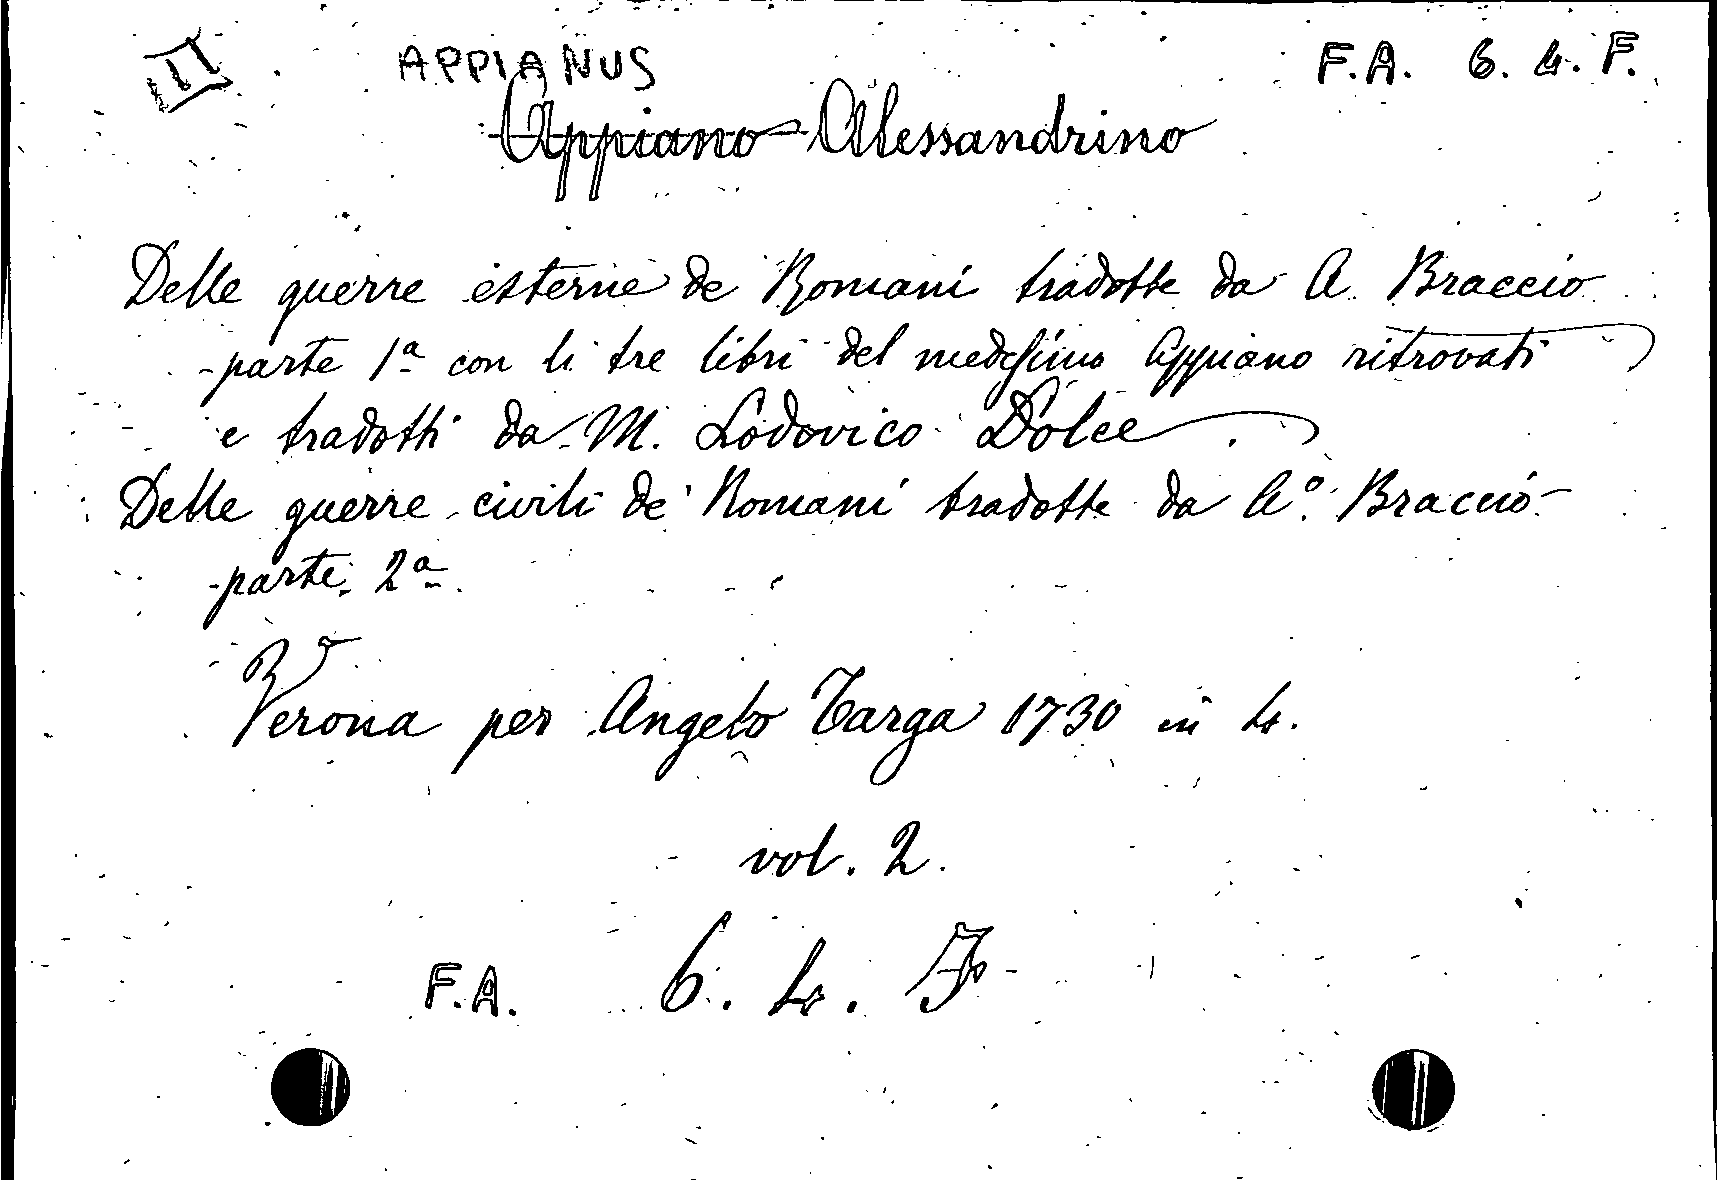 APPIANUS F.A. 6. 4. F.
Appiano Alessandrino
Delle guerre esterne de Romani tradotte da A. Braccio
parte 1ª con li tre libri del medesimo Appiano ritrovati
e tradotti da M. Lodovico Dolce.
Delle guerre civili de' Romani tradotte da A°. Braccio
parte 2ª
Verona per Angelo Targa 1730 in 4.
vol. 2.
F.A. 6. 4. F